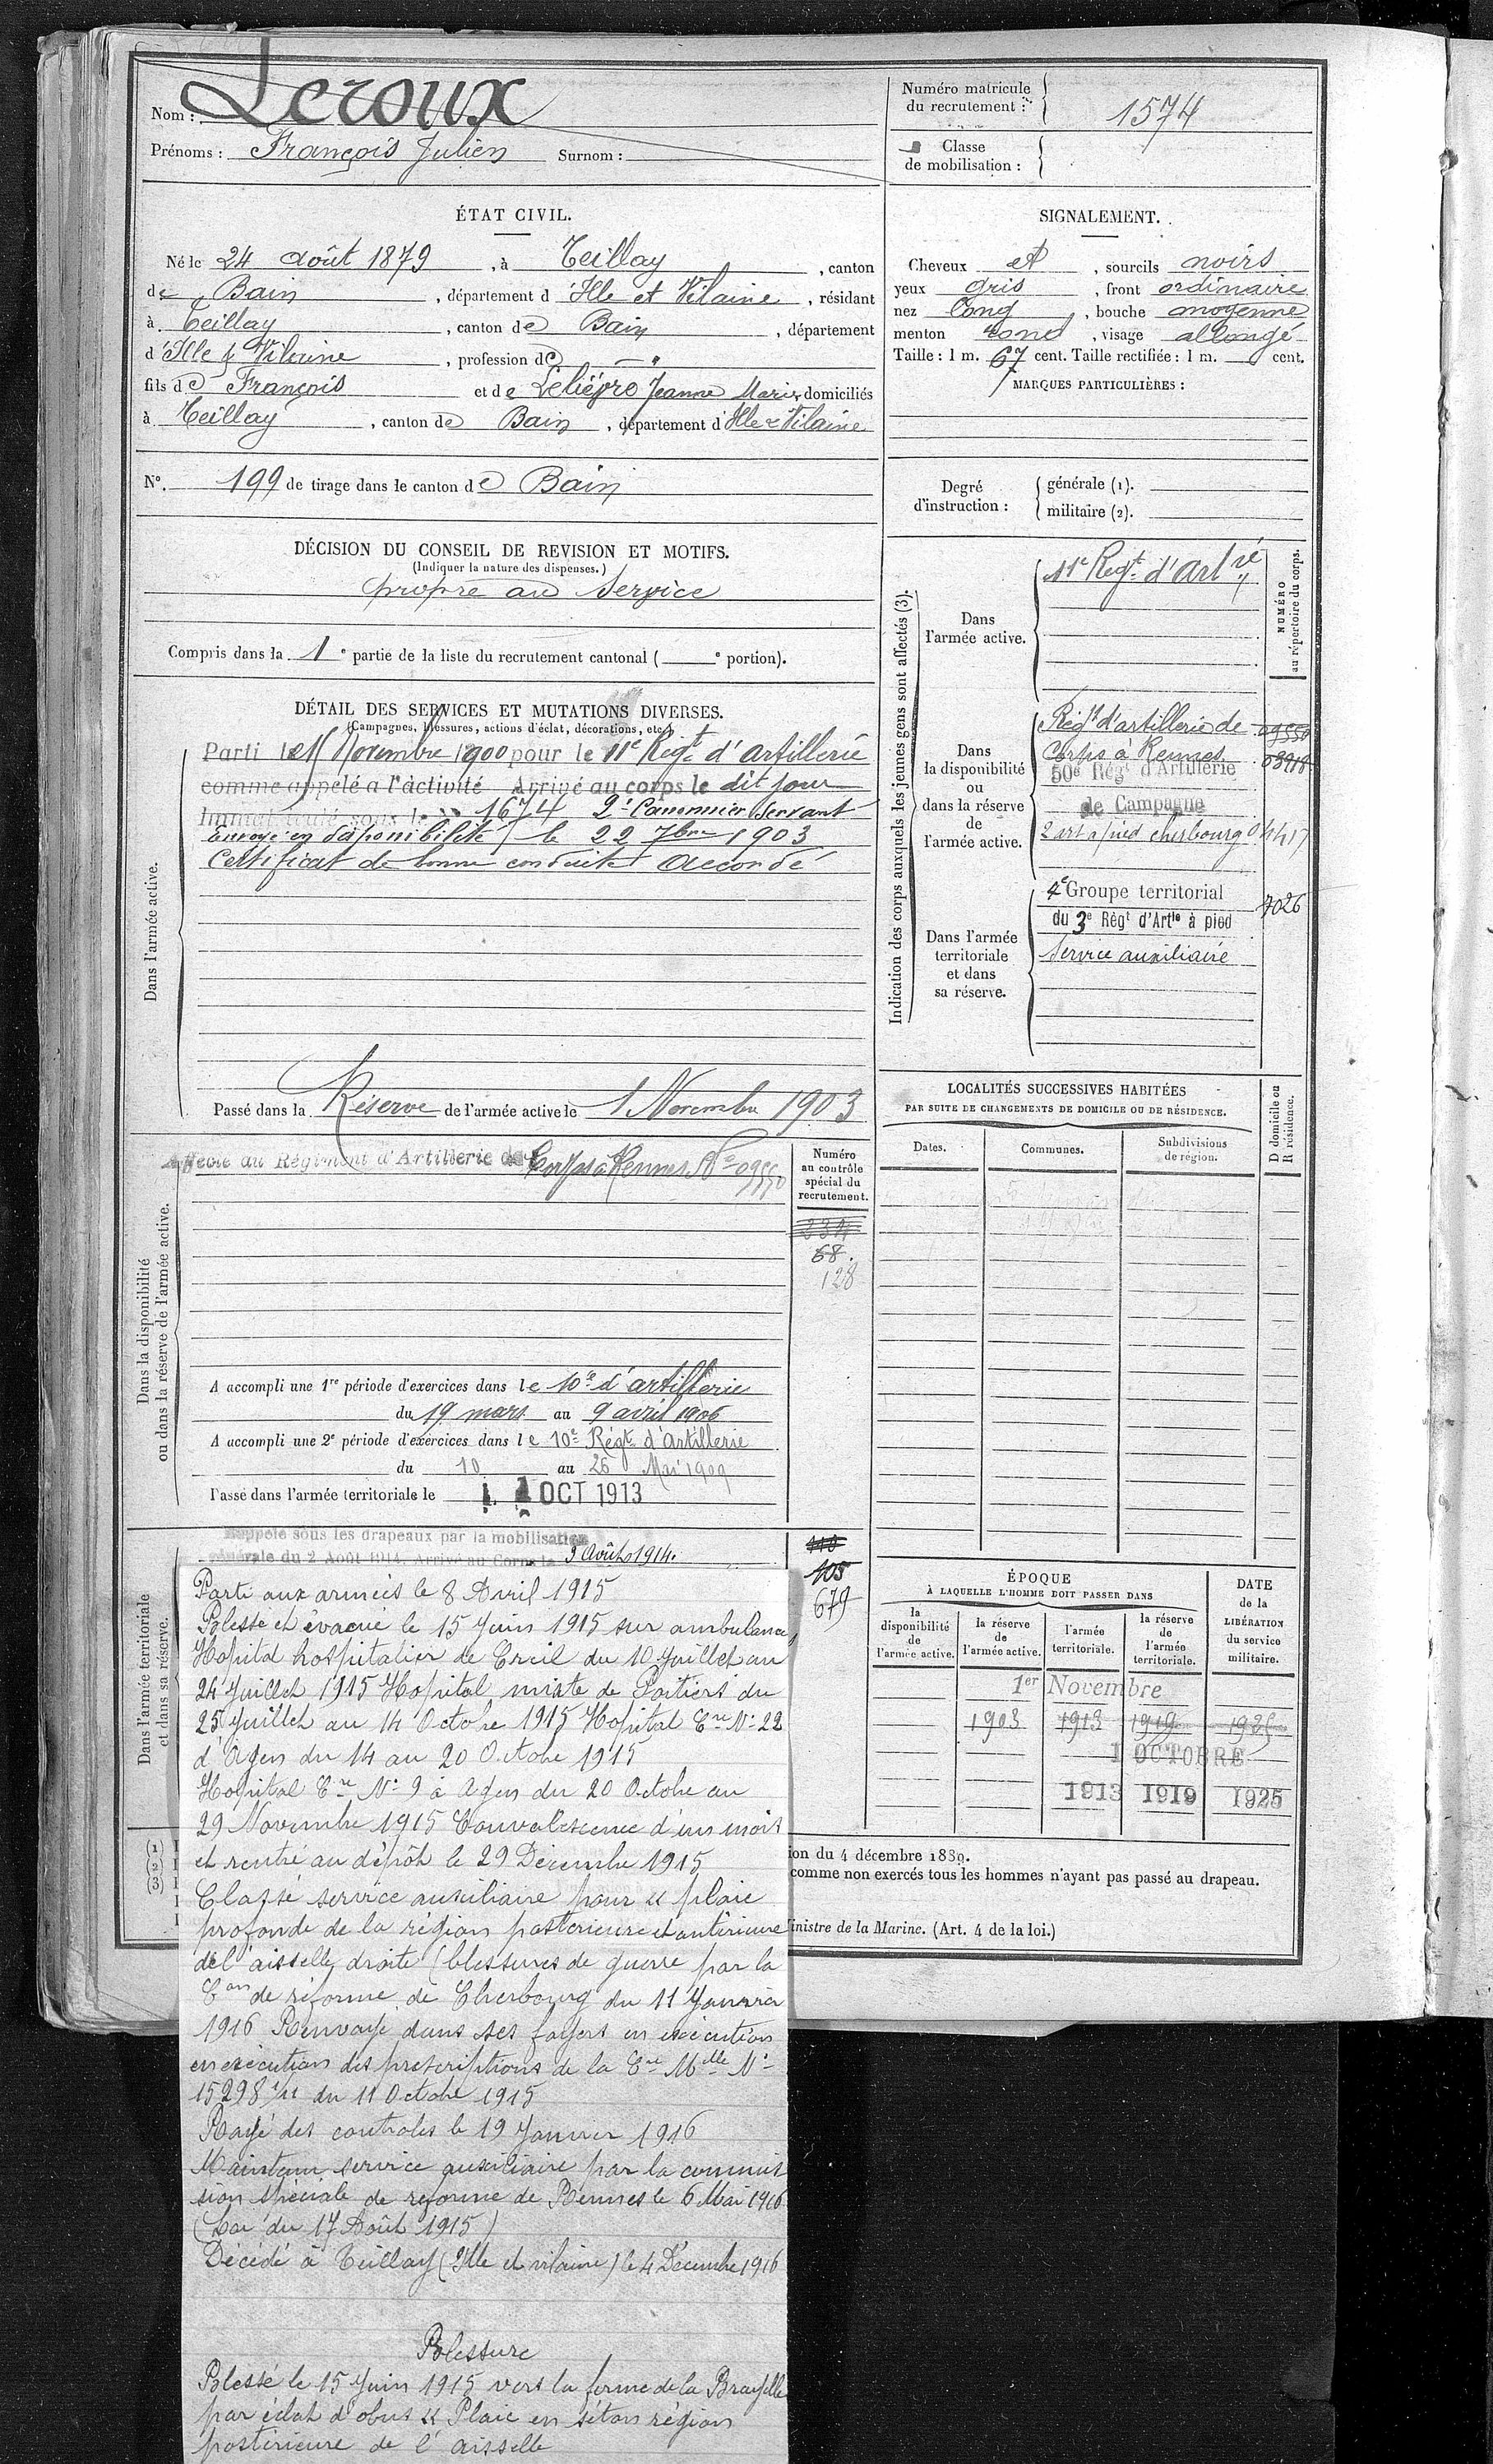 Nom : Leroux
Prénoms : François Julien Surnom :
Numéro matricule
du recrutement : 1574
Classe
de mobilisation :
ÉTAT CIVIL.
Né le 24 août 1879, à Teillay, canton
de Bain, département d'Ille et Vilaine, résidant
à Teillay, canton de Bain, département
d'Ille & Vilaine, profession de — "
fils de François et de Lelièpre Jeanne Marie, domiciliés
à Teillay, canton de Bain, département d'Ille & Vilaine
N°. 199 de tirage dans le canton de Bain
SIGNALEMENT.
Cheveux et, sourcils noirs
yeux gris, front ordinaire
nez long, bouche moyenne
menton rond, visage allongé
Taille : 1 m. 67 cent. Taille rectifiée : 1 m. cent.
MARQUES PARTICULIÈRES :
Degré
d'instruction :
générale (1).
militaire (2).
DÉCISION DU CONSEIL DE REVISION ET MOTIFS.
(Indiquer la nature des dispenses.)
propre au service
Compris dans la 1e partie de la liste du recrutement cantonal ( e portion).
DÉTAIL DES SERVICES ET MUTATIONS DIVERSES.
(Campagnes, blessures, actions d'éclat, décorations, etc.)
Dans l'armée active.
Parti le Novembre 1900 pour le 11e Regt d'artillerie
comme appelé a l'àctivité Arrivé au corps le dit jour
Immatriculé sous le 1674 2e Canonnier Servant
envoyé en disponibilité le 22 7bre 1903
Certificat de bonne conduite Accordé
Passé dans la Réserve de l'armée active le 1 Novembre 1903
Indication des corps auxquels les jeunes gens sont affectés (3).
NUMÉRO
au répertoire du corps.
Dans
l'armée active.
11e Regt d'artrie
Dans
la disponibilité
ou
dans la réserve
de
l'armée active.
Régt d'artillerie de 09550
Corps à Rennes 08918
50e Régt d'Artillerie
de Campagne
2 art à pied cherbourg 04417
Dans l'armée
territoriale
et dans
sa réserve.
4e Groupe territorial
du 3e Régt d'Artie à pied 7026
Service auxiliaire
Dans la disponibilité
ou dans la réserve de l'armée active.
Affecté au Régiment d'Artillerie de Corps à Rennes No 09550
Numéro
au contrôle
spécial du
recrutement.
68.
128
A accompli une 1re période d'exercices dans le 10e d'artillerie
du 19 mars au 9 avril 1906
A accompli une 2e période d'exercices dans le 10e Régt d'Artillerie
du 10 au 26 Mai 1909
Passé dans l'armée territoriale le 1 OCT 1913
LOCALITÉS SUCCESSIVES HABITÉES
PAR SUITE DE CHANGEMENTS DE DOMICILE OU DE RÉSIDENCE.
D domicile ou
R résidence.
Dates.
Communes.
Subdivisions
de région.
Dans l'armée territoriale
et dans sa réserve.
Rappelé sous les drapeaux par la mobilisation
générale du 2 Août 1914. Arrivé au Corps le 3 Août 1914.
110
105
679
Parti aux armées le 8 Avril 1915
Blessé et évacué le 15 Juin 1915 sur ambulance,
Hopital hospitalier de Creil du 10 Juillet au
24 Juillet 1915 Hopital mixte de Poitiers du
25 Juillet au 14 Octobre 1915 Hopital Cre No 22
d'Agen du 14 au 20 Octobre 1915
Hopital Cre No 9 à Agen du 20 Octobre au
29 Novembre 1915 Convalescence d'un mois
et rentré au dépôt le 29 Decembre 1915
Classé service auxiliaire pour « plaie
profonde de la région posterieure et antérieure
de l'aisselle droite (blessures de guerre par la
Con de réforme de Cherbourg du 11 Janvier
1916 Renvoyé dans ses foyers en exécution
en exécution des prescriptions de la Cre Mlle No
15298 1/11 du 11 Octobre 1915
Rayé des controles le 19 Janvier 1916
Maintenu service auxiliaire par la commis
sion spéciale de reforme de Rennes le 6 Mai 1916
(Loi du 17 Août 1915)
Décédé à Teillay (Ille et vilaine) le 4 Décembre 1916
Blessure
Blessé le 15 Juin 1915 vers la ferme de la Brayelle
par éclat d'obus « Plaie en séton région
postérieure de l'aisselle
ÉPOQUE
À LAQUELLE L'HOMME DOIT PASSER DANS
la
disponibilité
de
l'armée active.
la réserve
de
l'armée active.
l'armée
territoriale.
la réserve
de
l'armée
territoriale.
DATE
de la
LIBÉRATION
du service
militaire.
1er Novembre
1903 1913 1919 1925
1 OCTOBRE
1913 1919 1925
(1)
(2)
(3)
ion du 4 décembre 1889.
comme non exercés tous les hommes n'ayant pas passé au drapeau.
inistre de la Marine. (Art. 4 de la loi.)